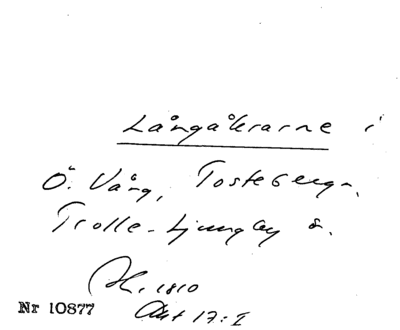 Långåkrarne i
Ö. Vång, Tosteberga,
Trolle-Ljungby s.
H. 1810
Nr 10877
Akt 17:I